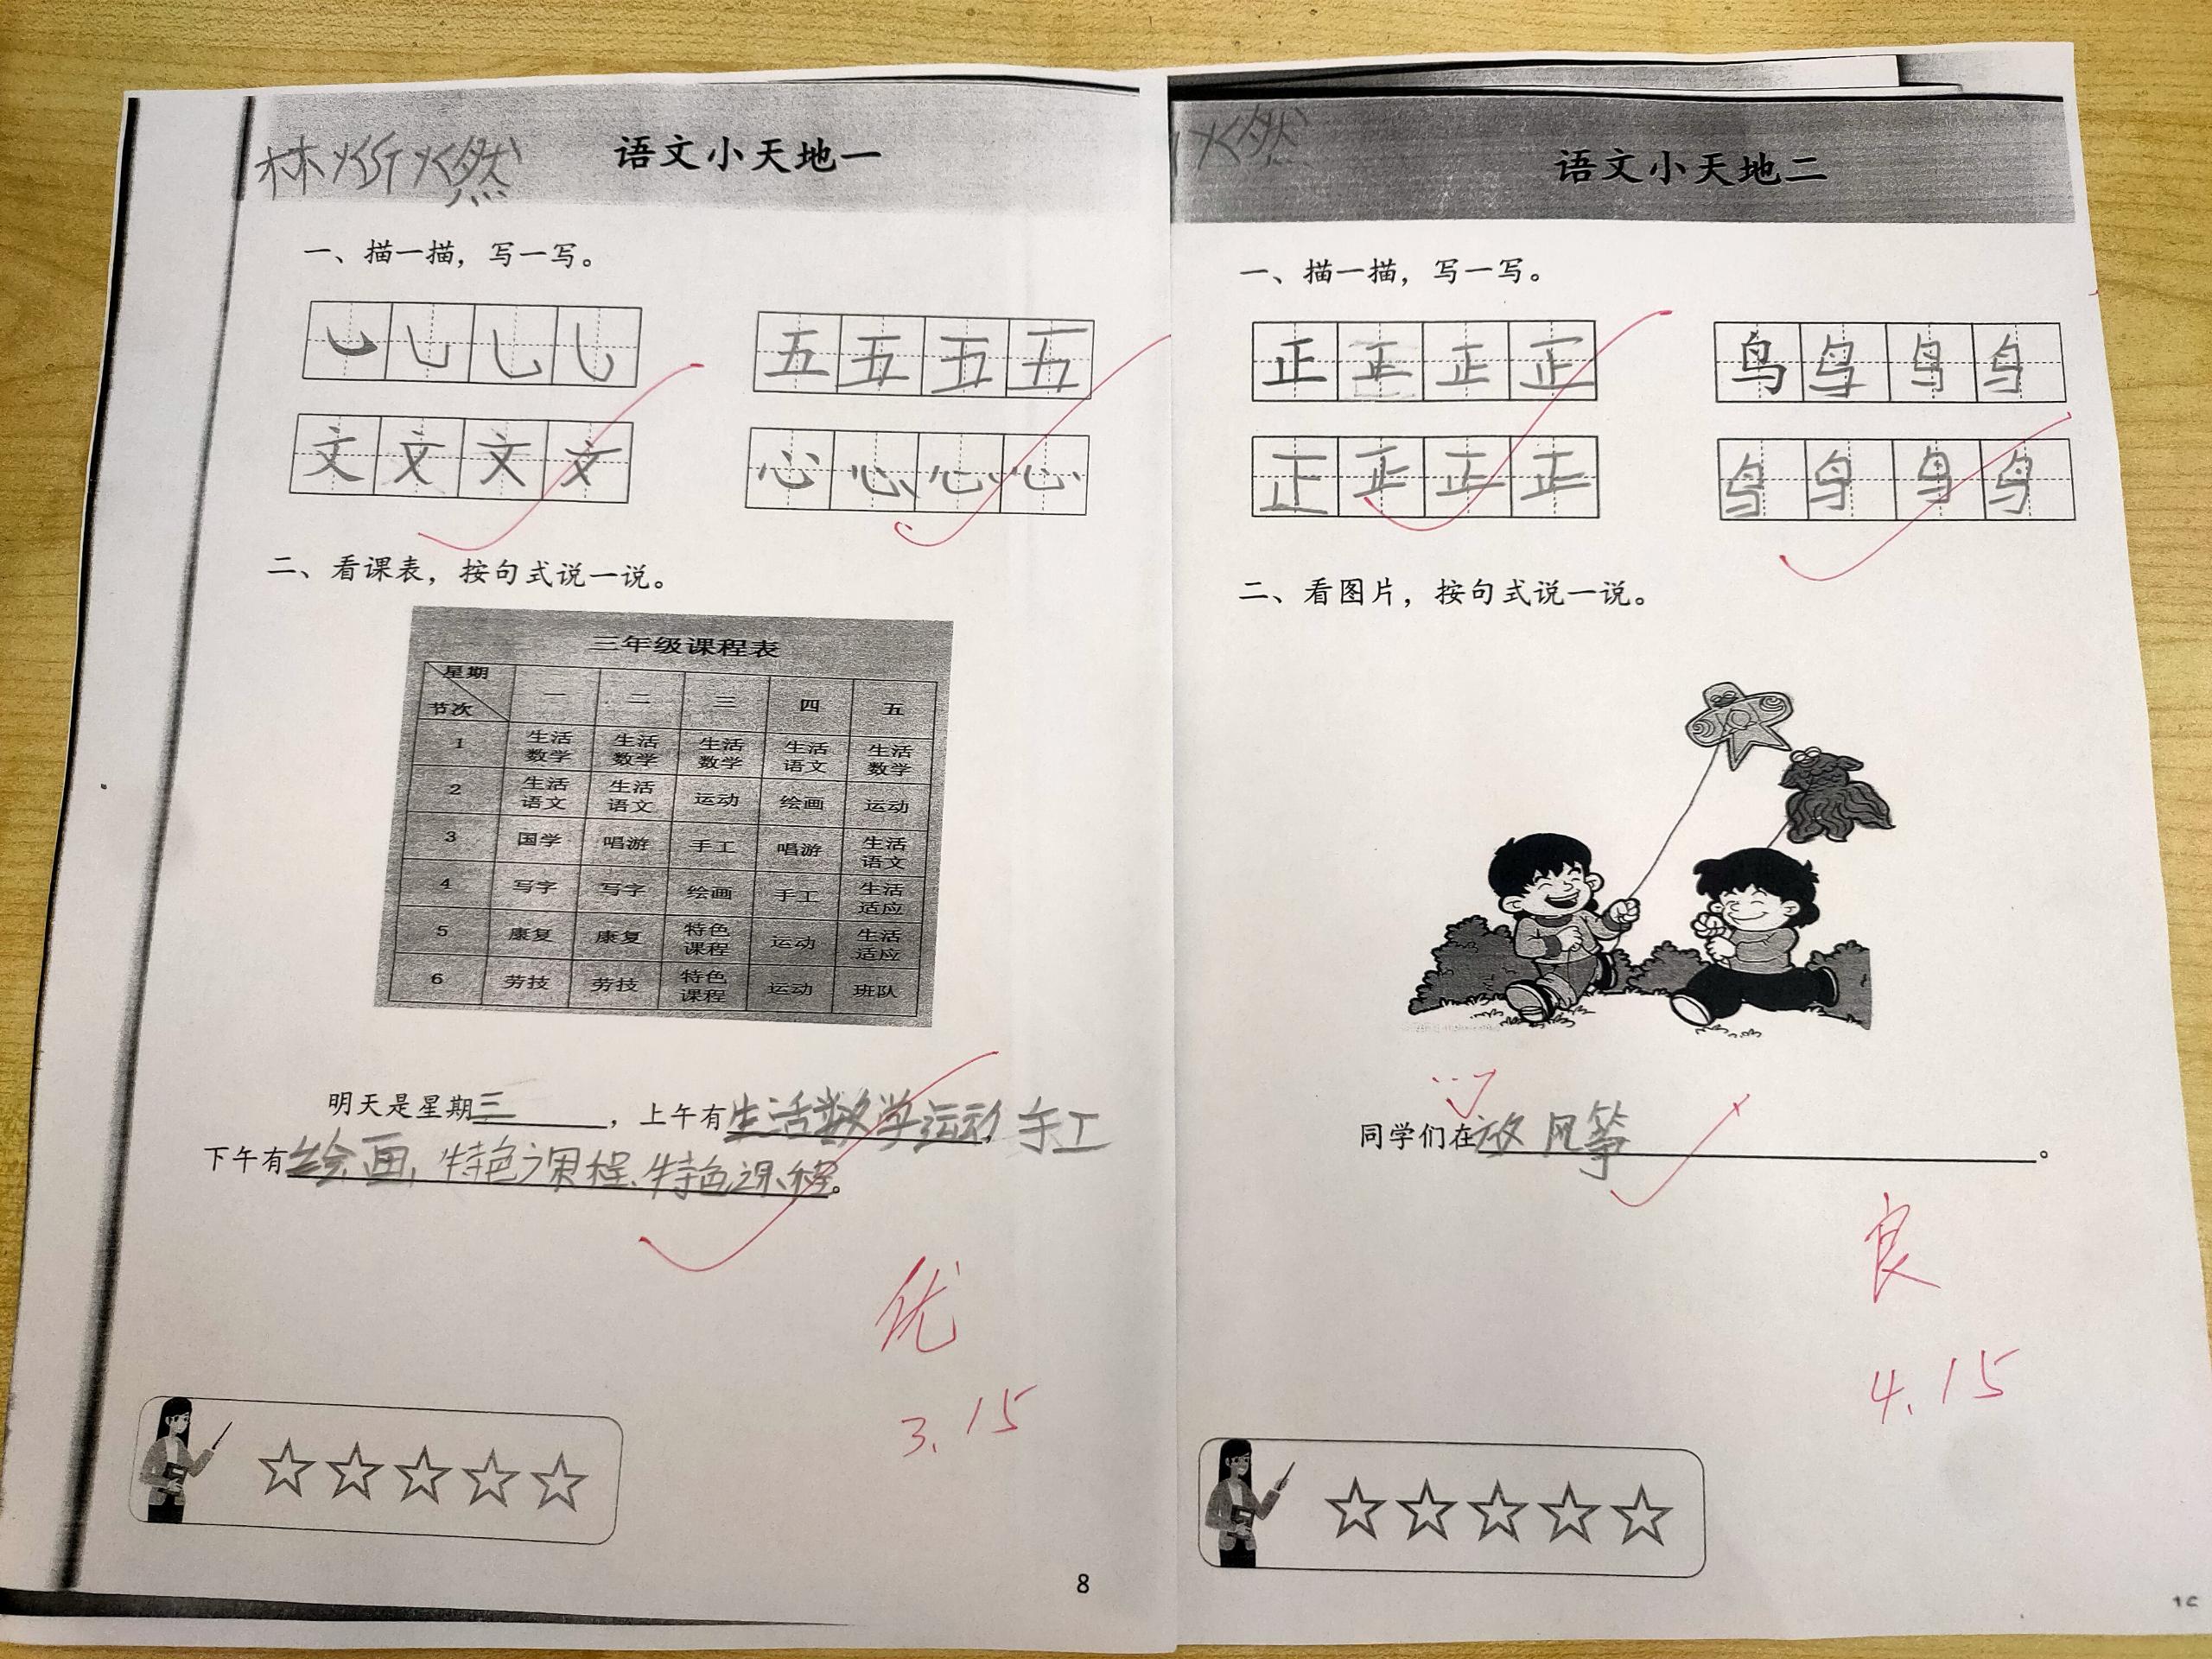 林炘燃
语文小天地一
一、描一描，写一写。
乚 乚 乚 乚
五 五 五 五
文 文 文 文
心 心 心 心
二、看课表，按句式说一说。
三年级课程表
星期 一 二 三 四 五
节次
1 生活数学 生活数学 生活数学 生活语文 生活数学
2 生活语文 生活语文 运动 绘画 运动
3 国学 唱游 手工 唱游 生活语文
4 写字 写字 绘画 手工 生活适应
5 康复 康复 特色课程 运动 生活适应
6 劳技 劳技 特色课程 运动 班队
明天是星期三，上午有生活数学运动、手工
下午有绘画、特色课程、特色课程。
优
3.15
8
燃
语文小天地二
一、描一描，写一写。
正 正 正 正
鸟 鸟 鸟 鸟
正 正 正 正
鸟 鸟 鸟 鸟
二、看图片，按句式说一说。
同学们在放风筝。
良
4.15